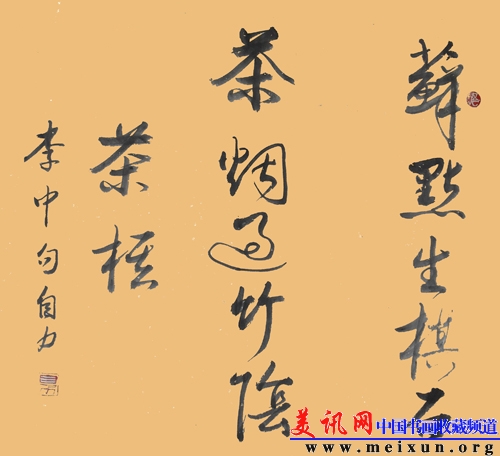 蘚點生棋石
茶烟過竹陰
茶
李中句自力
美讯网 中国书画收藏频道
www.meixun.org